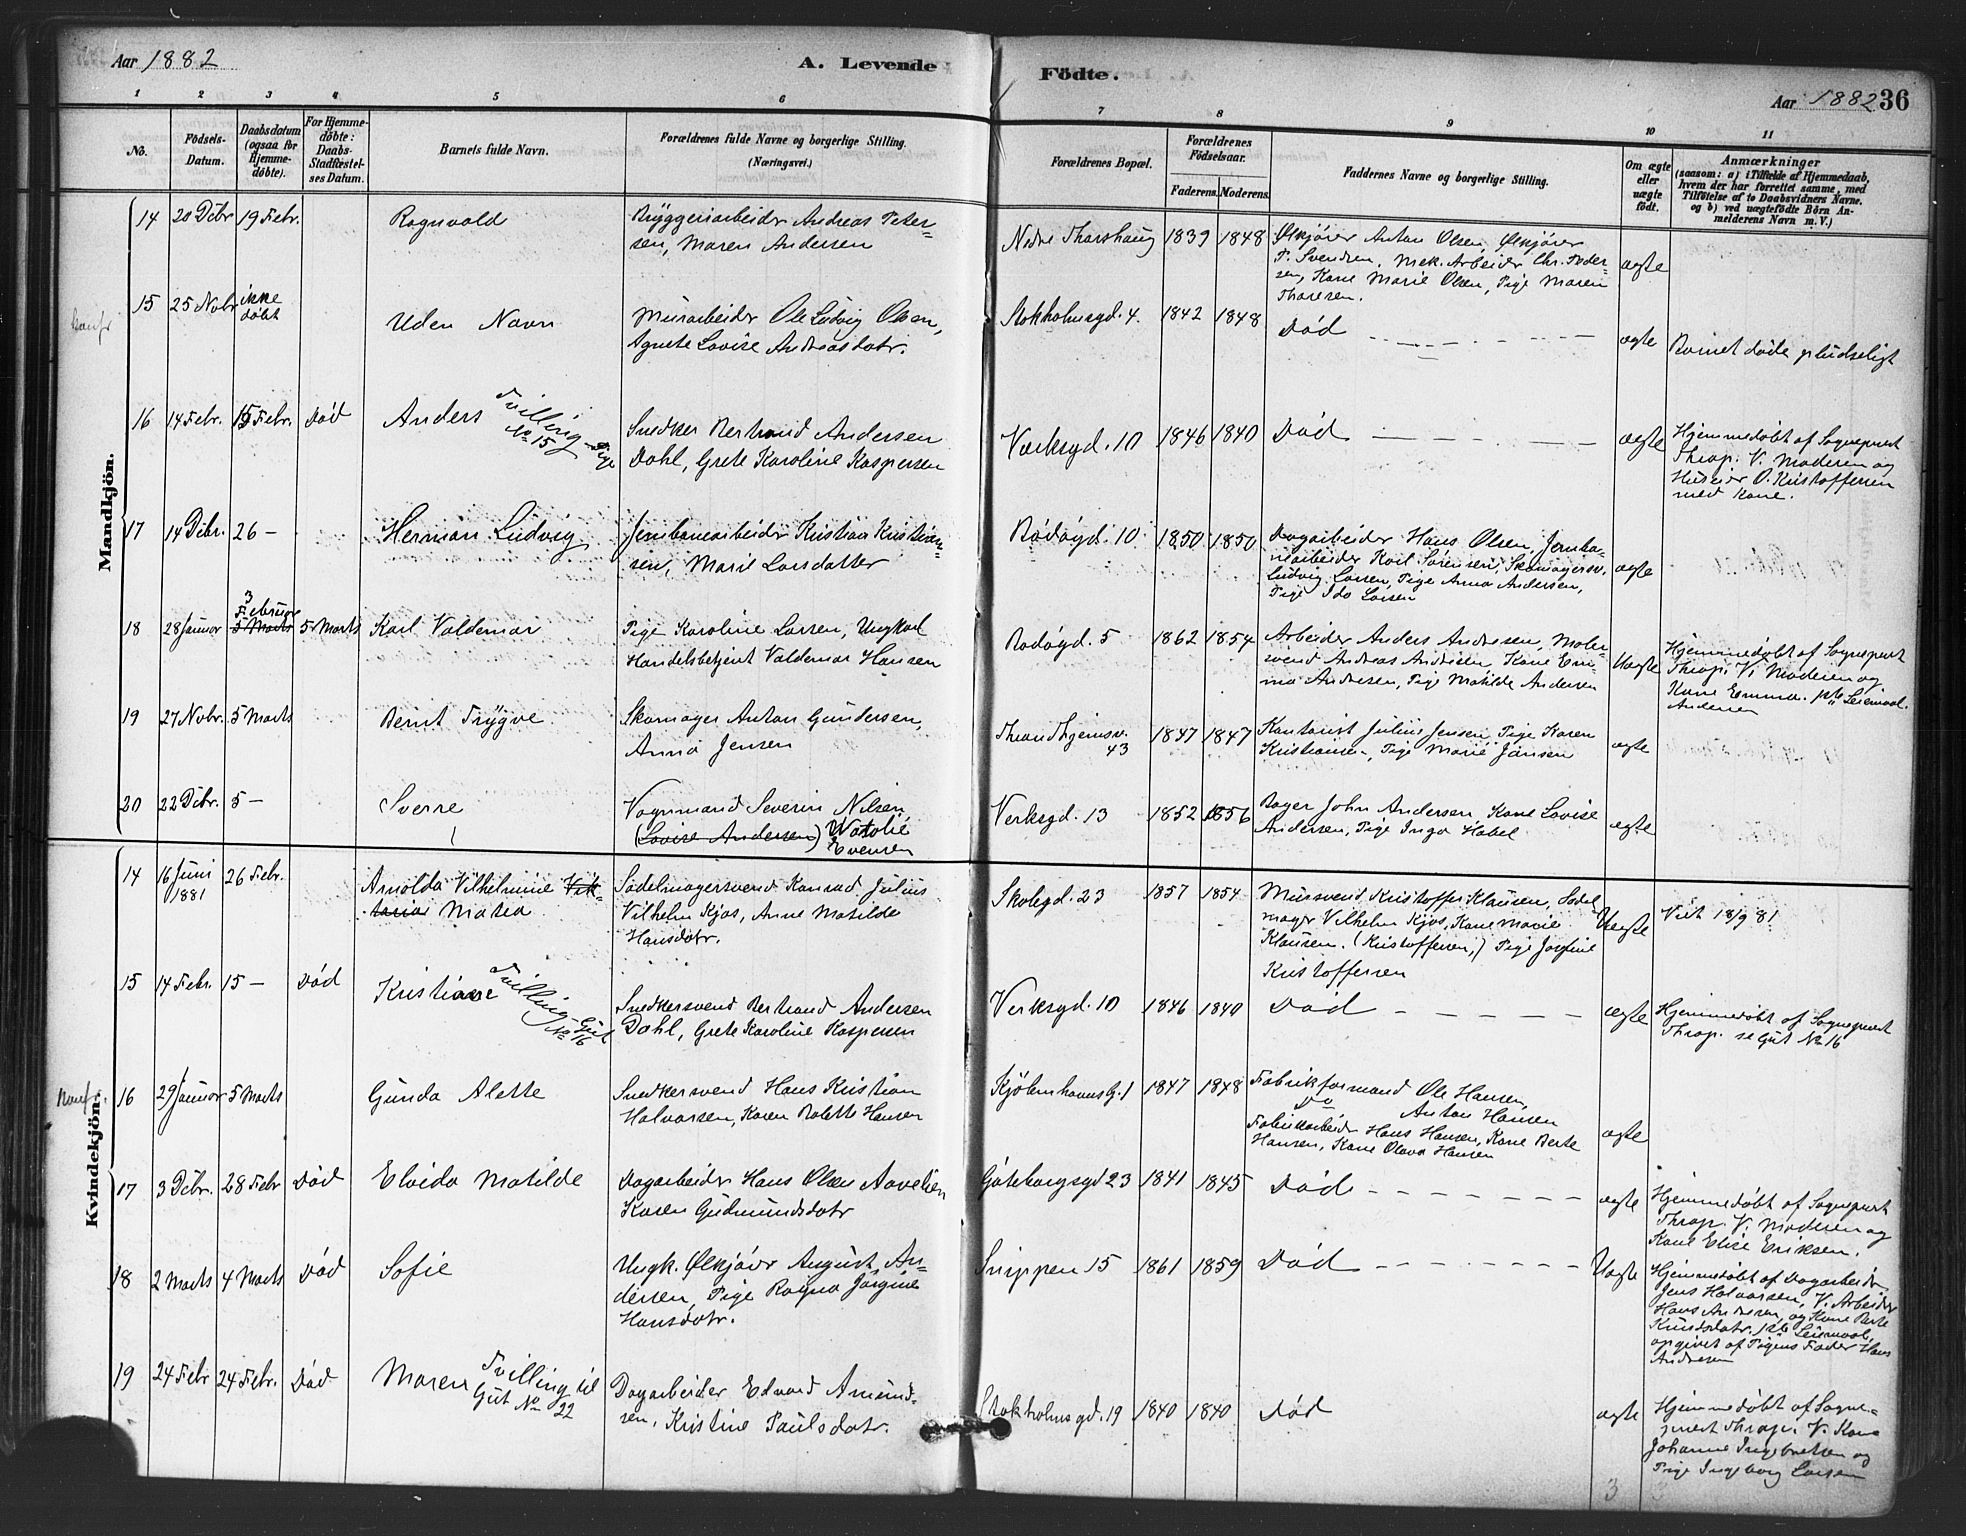 Aar 1882
A. Levende
Fødte.
Aar 1882 36
1 2 3 4 5 6 7 8 9 10 11
No.
Fødsels-
Datum.
Daabsdatum
(ogsaa for
Hjemme-
døbte).
For Hjemme-
døbte:
Daabs-
Stadfæstel-
ses Datum.
Barnets fulde Navn.
Forældrenes fulde Navne og borgerlige Stilling.
(Næringsvei.)
Forældrenes Bopæl.
Forældrenes
Fødselsaar.
Faderens. Moderens.
Faddernes Navne og borgerlige Stilling.
Om ægte
eller
uægte
født.
Anmærkninger
(saasom: a) i Tilfælde af Hjemmedaab,
hvem der har forrettet samme, med
Tilføielse af to Daabsvidners Navne.
og b) ved uægtefødte Børn An-
melderens Navn m. V.)
Mandkjön.
14 20 Dcbr 19 Febr. Ragnvald
Bryggeriarbeider Andreas Peter-
sen, Maren Andersen
Nedre Thorshaug 1839 1848
Ølkjører Anton Olsen, Ølkjører
P. Svendsen, Mek. Arbeider Chr. Peder-
sen, Kone Marie Olsen, Pige Maren
Thoresen.
ægte
15 25 Novbr ikke
døbt
Uden Navn
Murarbeider Ole Ludvig Olsen,
Agnete Lovise Andreasdatr.
Stokholmsgd. 4. 1842 1848 Død
ægte Barnet døde pludseligt
16 14 Febr. 15 Febr. Død Anders Tvilling
No 15 Pige
Snedker Bertrand Andersen
Dahl, Grete Karoline Kaspersen
Verksgd. 10 1846 1840 Død
ægte Hjemmedøbt af Sogneprest
Thrap. V. Madsen og
Huseier O. Kristoffersen
med Kone.
17 14 Dcbr. 26 - Herman Ludvig
Jernbanearbeider Kristian Kristian-
sen, Marie Larsdatter
Rødøgd. 10. 1850 1850
Dagarbeider Hans Olsen, Jernba-
nearbeider Karl Sørensen, Skomagersv.
Ludvig Larsen, Pige Anna Andersen,
Pige Ida Larsen
ægte
18 28 Januar 3
Februar
5 Marts 5 Marts Karl Valdemar
Pige Karoline Larsen, Ungkarl
Handelsbetjent Valdemar Hansen
Rødøgd. 5 1862 1854
Arbeider Anders Andresen, Maler-
svend Andreas Andresen, Kone Em-
ma Andresen, Pige Matilde Andersen
Uægte Hjemmedøbt af Sogneprest
Thrap. V. Madsen og
Kone Emma
Andersen
19 27 Novbr. 5 Marts Bernt Trygve
Skomager Anton Gundersen,
Anna Jensen
Throndhjemsv.
43 1847 1847
Kontorist Julius Jensen, Pige Karen
Kristiansen, Pige Marie Jansen
ægte
20 22 Dcbr. 5 - Sverre
Vognmand Severin Nilsen,
(Lovise Andersen) Natalie
Evensen
Verksgd. 13 1852 1856
Bager John Andersen, Kone Lovise
Andersen, Pige Inga Habel
ægte
Kvindekjön.
14 16 Juni
1881 26 Febr. Arnolda Vilhelmine Vik-
toria Maria
Sadelmagersvend Konrad Julius
Vilhelm Kjos, Anne Matilde
Hansdatr.
Skolegd. 23 1857 1854
Mursvend Kristoffer Klausen, Sadel-
mager Vilhelm Kjos, Kone Marie
Klausen. (Kristoffersen,) Pige Josefine
Kristoffersen
Uægte Viet 18/9 81
15 14 Febr. 15 - Død Kristiane Tvilling
Gut
No 16
Snedkersvend Bertrand Andersen
Dahl, Grete Karoline Kaspersen
Verksgd. 10 1846 1840 Død
ægte Hjemmedøbt af Sogneprest
Thrap. se Gut No 16
16 29 Januar 5 Marts Gunda Alette
Snedkersvend Hans Kristian
Halvorsen, Karen Bolette Hansen
Kjøbenhavnsg. 1 1847 1848
Fabrikformand Ole Hansen,
do Anton Hansen
Fabrikarbeider Hans Hansen, Kone Berte
Hansen, Kone Olava Hansen
ægte
17 3 Dcbr. 28 Febr Død Elvida Matilde
Dagarbeider Hans Olsen
Karen Gudmundsdatr
Gøteborgsgd 23 1841 1845 Død
ægte Hjemmedøbt af Sogneprest
Thrap. V. Madsen og
Kone Elise Eriksen.
18 2 Marts 4 Marts Død Sofie
Ungk. Ølkjører August An-
dersen, Pige Ragna Jørgine
Hansdatr.
Snippen 15 1861 1859 Død
Uægte Hjemmedøbt af Dagarbeider
Jens Halvorsen, V. Arbeider
Hans Andresen og Kone Berte
Knudsdatr.
opgivet af Pigens Fader Hans
Andresen
19 24 Febr 24 Febr. Død Maren Tvilling til
Gut No 22
Dagarbeider Edvard Amund-
sen, Kristine Paulsdatr.
Stokholmsgd. 19 1840 1840 Død
ægte Hjemmedøbt af Sogne-
prest Thrap. V. Kone
Johanne Ingebretsen og
Pige Ingeborg Larsen
3